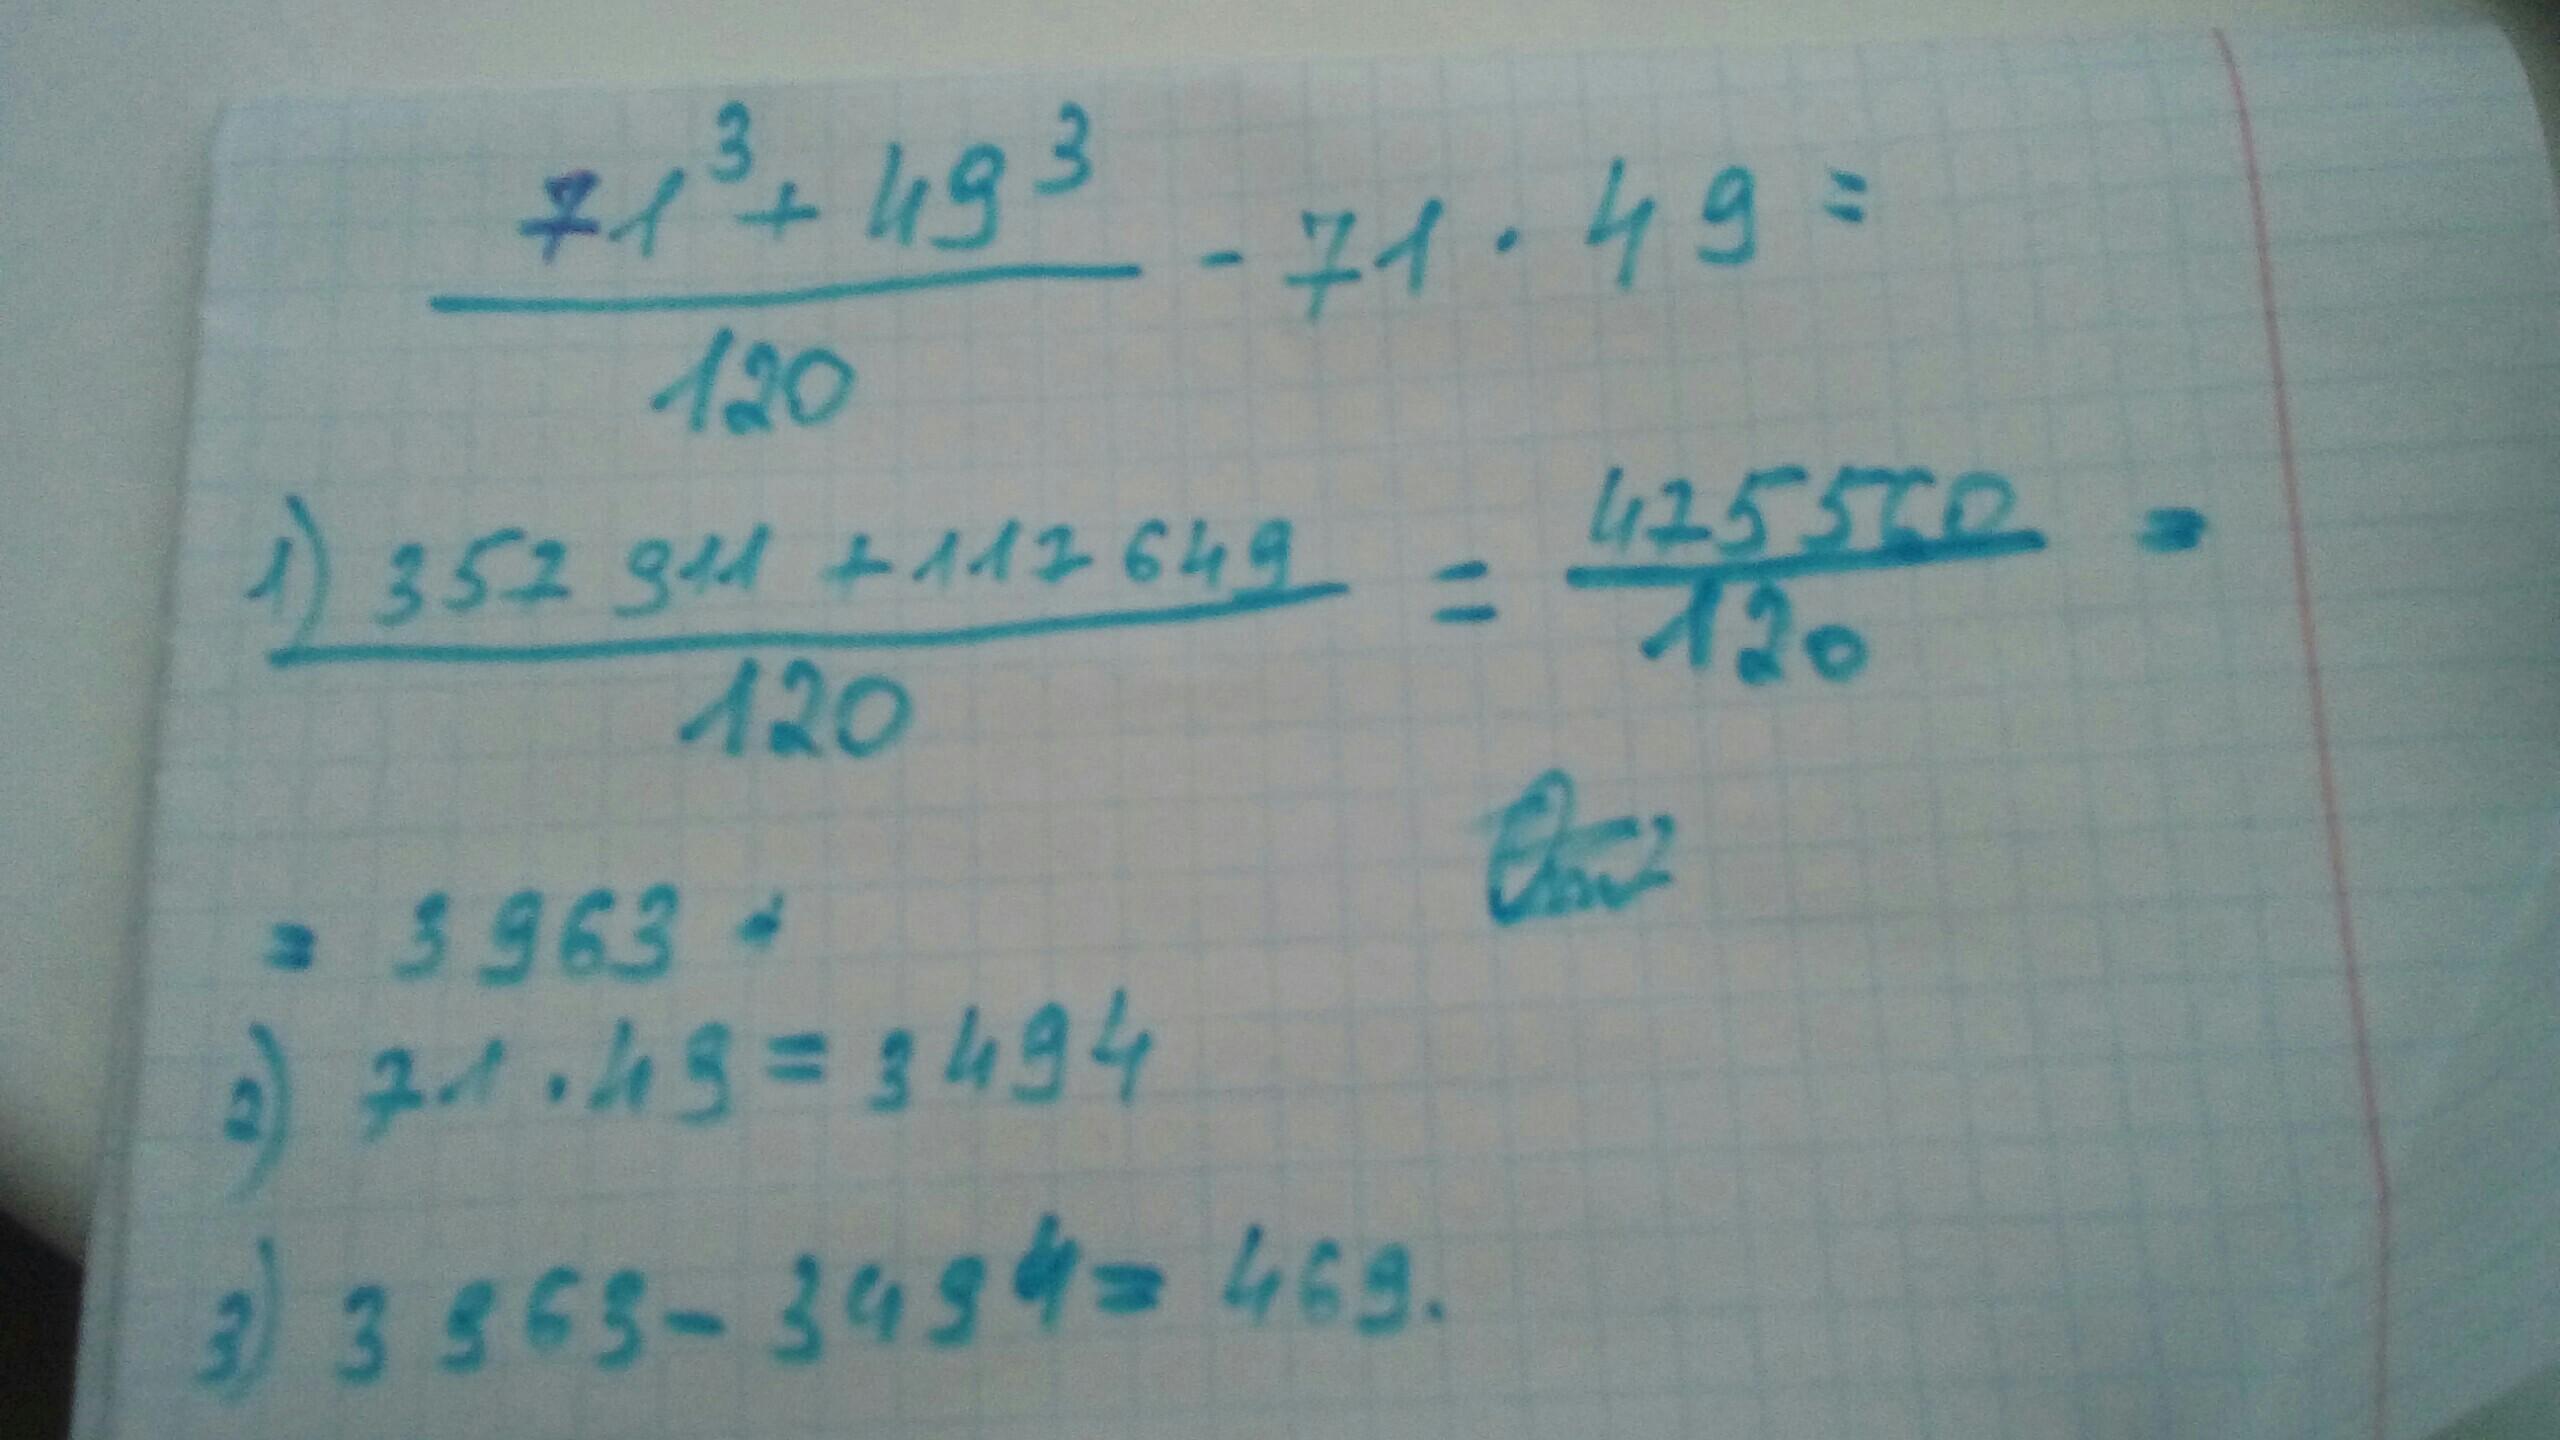 71³ + 49³
—————— - 71 · 49 =
120
1) 357 911 + 117 649 = 475560 =
120 120
= 3963 .
2) 71 · 49 = 3494
3) 3963 - 3494 = 469.